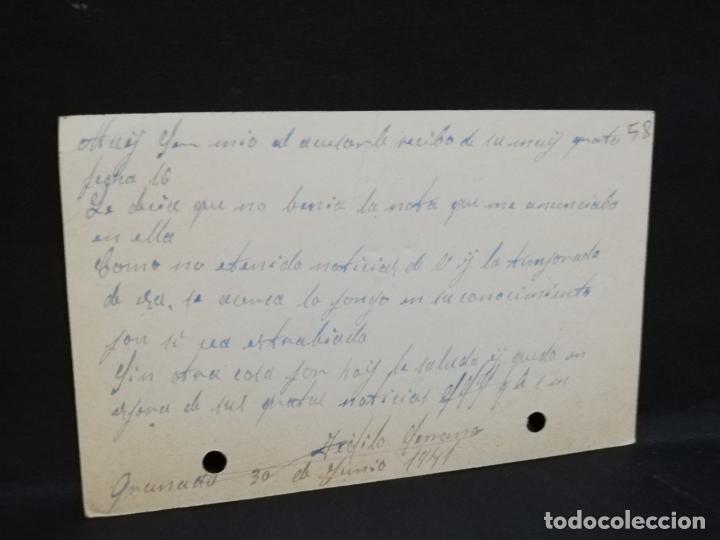 Muy Snr mio al acusarle recibo de su muy grata 58
fecha 16
Le decia que no benia la nota que me anunciaba
en ella
Como no etenido noticias de V y la temporada
de se acerca lo pongo en su conocimiento
por si sea estrabiado
Sin otra cosa por hoy le saluda y queda en
espera de sus gratas noticias
Teofilo Serrano
Granada 30 de Junio 1941
todocoleccion
todocoleccion.net